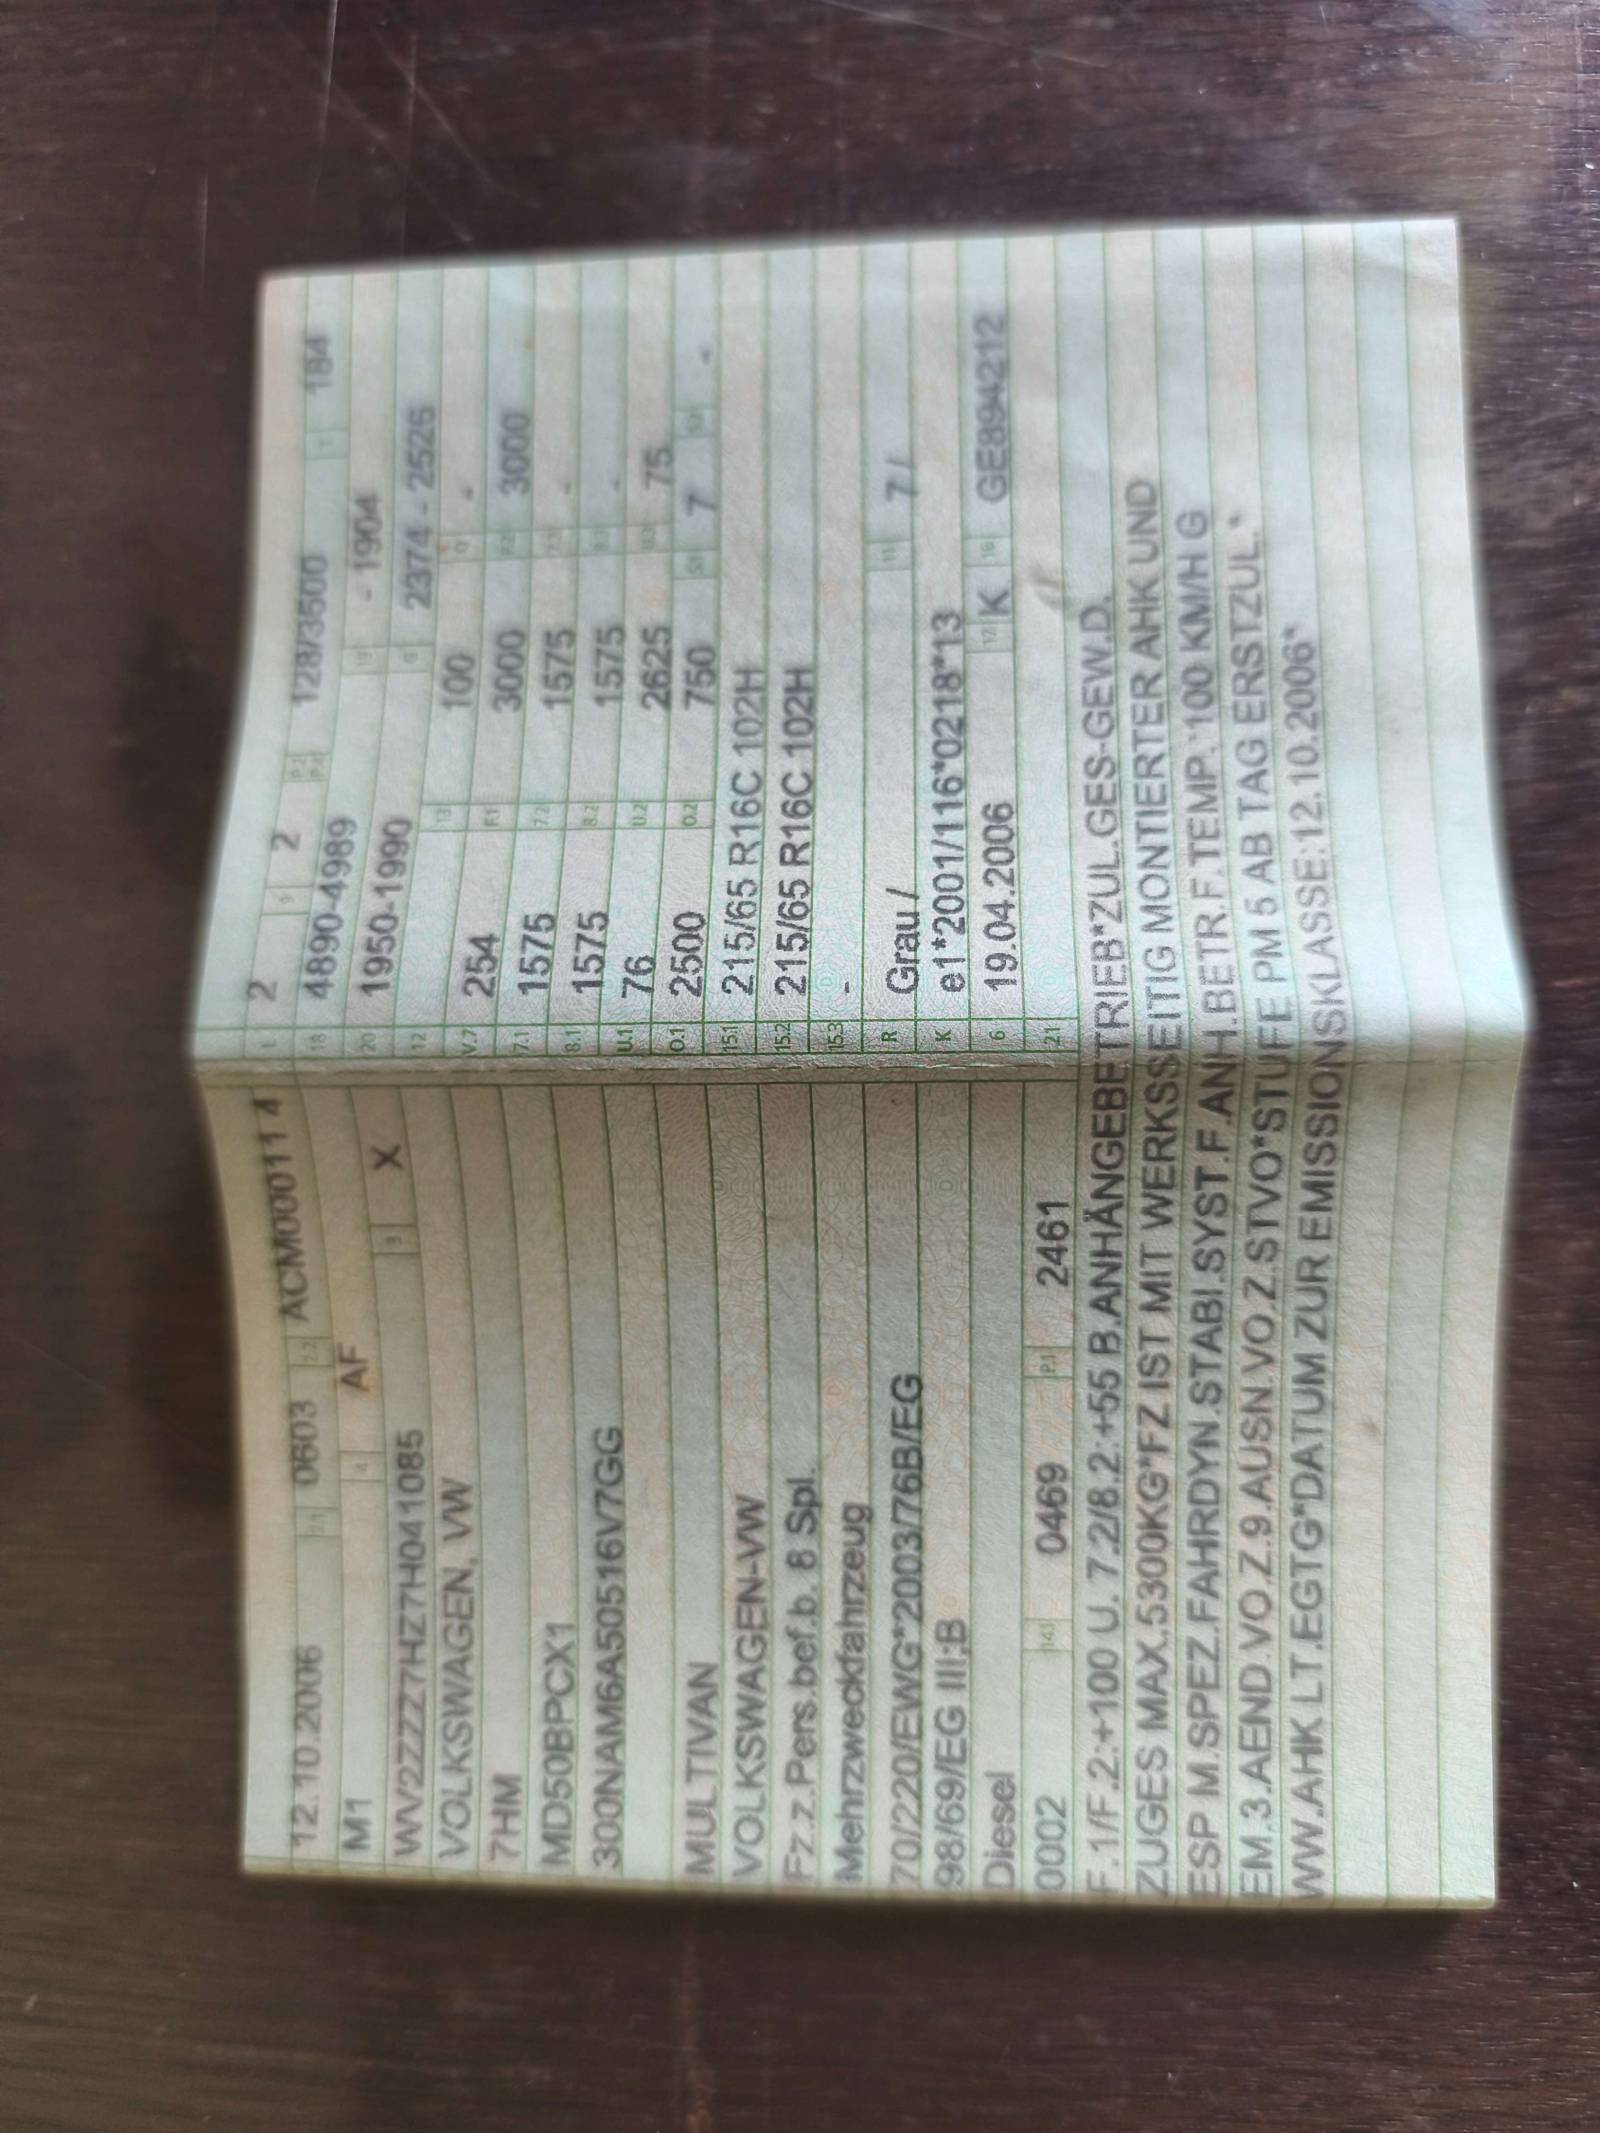 12.10.2006 2.1 0603 2.2 ACM000111 4
M1 4 AF
WV2ZZZ7HZ7H041085 3 X
VOLKSWAGEN, VW
7HM
MD50BPCX1
300NAM6A50516V7GG
MULTIVAN
VOLKSWAGEN-VW
Fz.z.Pers.bef.b. 8 Spl.
Mehrzweckfahrzeug
70/220/EWG*2003/76B/EG
98/69/EG III;B
Diesel
0002 14.1 0469 P.1 2461
L 2 9 2 P.2 P.4 128/3500 T 184
18 4890-4989 19 - 1904
20 1950-1990 G 2374 - 2526
12 13 100 Q -
V.7 254 F.1 3000 F.2 3000
7.1 1575 7.2 1575 7.3 -
8.1 1575 8.2 1575 8.3 -
U.1 76 U.2 2625 U.3 75
O.1 2500 O.2 750 S.1 7 S.2 -
15.1 215/65 R16C 102H
15.2 215/65 R16C 102H
15.3 -
R Grau / 11 7 /
K e1*2001/116*0218*13
6 19.04.2006 17 K 16 GE894212
21
F.1/F.2:+100 U. 7.2/8.2:+55 B.ANHÄNGEBETRIEB*ZUL.GES-GEW.D.
ZUGES MAX.5300KG*FZ IST MIT WERKSSEITIG MONTIERTER AHK UND
ESP M.SPEZ.FAHRDYN.STABI.SYST.F.ANH.BETR.F.TEMP.*100 KM/H G
EM.3.AEND.VO.Z.9.AUSN.VO.Z.STVO*STUFE PM 5 AB TAG ERSTZUL.*
WW.AHK LT.EGTG*DATUM ZUR EMISSIONSKLASSE:12.10.2006*